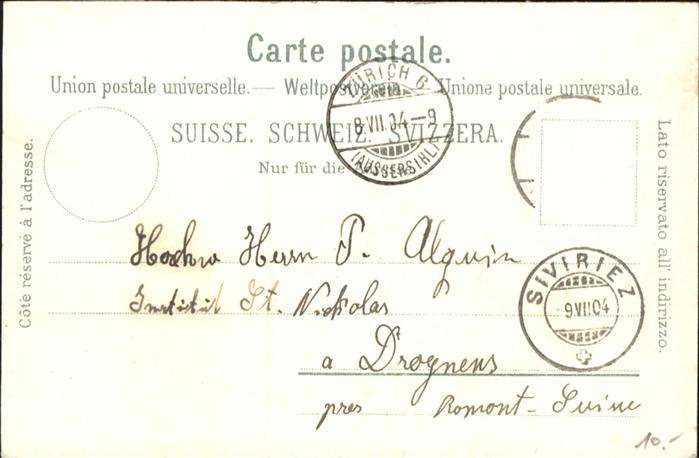 Carte postale.
Union postale universelle. — Weltpostverein. Unione postale universale.
SUISSE. SCHWEIZ. SVIZZERA.
Nur für die
Côte réservé à l'adresse.
Lato riservato all' indirizzo.
ZÜRICH 6
8.VII.04–9
(AUSSERSIHL)
Herrn P. Alquin
Institut St. Nickolas
SIVIRIEZ
9VII04
a Drognens
pres Romont-Suisse
10.-